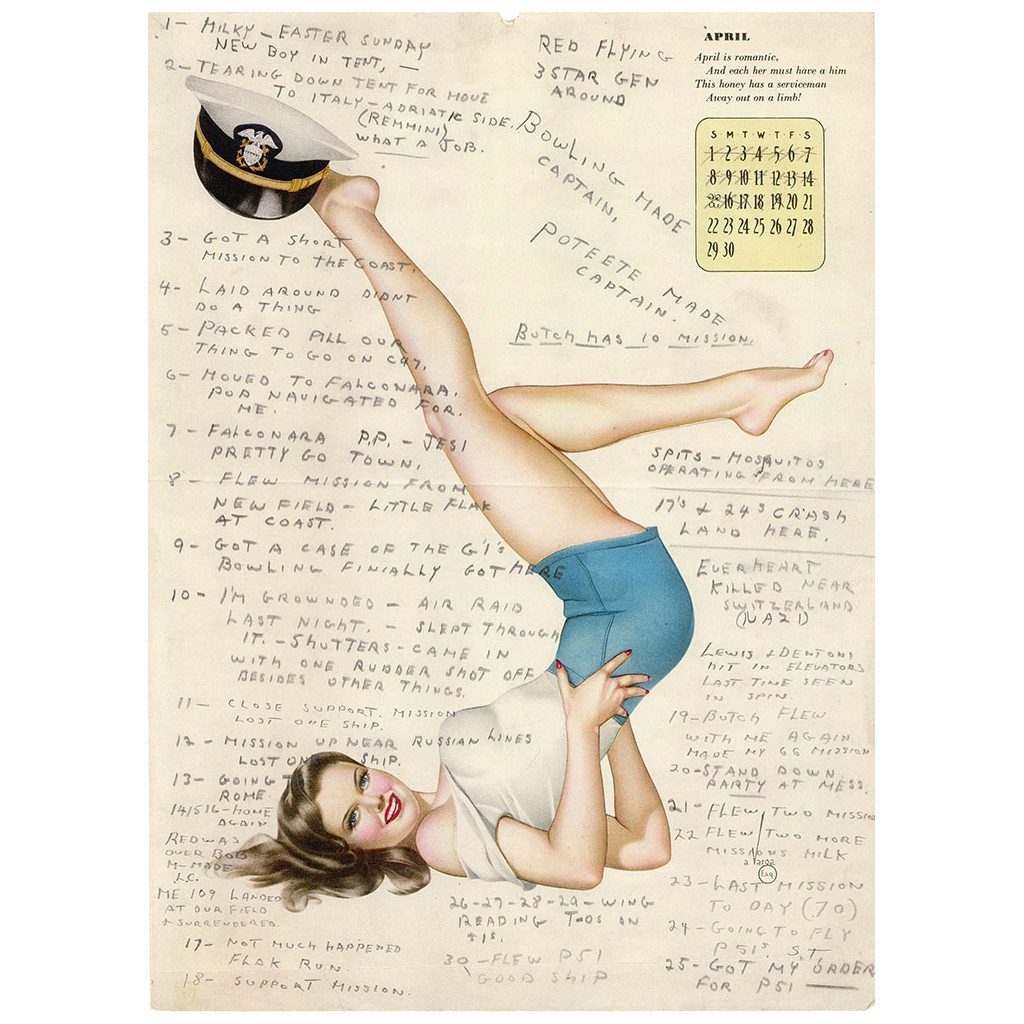 APRIL
April is romantic,
And each her must have a him
This honey has a serviceman
Away out on a limb!
S M T W T F S
1 2 3 4 5 6 7
8 9 10 11 12 13 14
15 16 17 18 19 20 21
22 23 24 25 26 27 28
29 30
1- MILKY - EASTER SUNDAY
NEW BOY IN TENT, -
2- TEARING DOWN TENT FOR MOVE
TO ITALY - ADRIATIC SIDE.
(REMMINI)
WHAT A JOB.
RED FLYING
3 STAR GEN
AROUND
BOWLING MADE
CAPTAIN,
POTEETE MADE
CAPTAIN.
BUTCH HAS 10 MISSION.
3- GOT A SHORT
MISSION TO THE COAST.
4- LAID AROUND DIDNT
DO A THING
5- PACKED ALL OUR
THING TO GO ON C47.
6- MOVED TO FALCONARA.
POP NAVIGATED FOR
ME.
7- FALCONARA P.P. - JESI
PRETTY GO TOWN.
8- FLEW MISSION FROM
NEW FIELD - LITTLE FLAK
AT COAST.
9- GOT A CASE OF THE G'I'S
BOWLING FINIALLY GOT HERE
10- I'M GROWNDED - AIR RAID
LAST NIGHT. - SLEPT THROUGH
IT. - SHUTTERS - CAME IN
WITH ONE RUBBER SHOT OFF
BESIDES OTHER THINGS.
11- CLOSE SUPPORT. MISSION
LOST ONE SHIP.
12- MISSION UP NEAR RUSSIAN LINES
LOST ONE SHIP.
13- GOING TO
ROME
14/15/16- HOME
AGAIN
RED WAS
OVER BOB
M- MADE
L.C.
ME 109 LANDED
AT OUR FIELD
& SURRENDERED.
17- NOT MUCH HAPPENED
FLAK RUN.
18- SUPPORT MISSION.
SPITS - MOSQUITOS
OPERATING FROM HERE
17'S & 24'S CRASH
LAND HERE.
EVERHEART
KILLED NEAR
SWITZERLAND
(VA21)
LEWIS & DENTONS
HIT IN ELEVATORS
LAST TIME SEEN
IN SPIN.
19- BUTCH FLEW
WITH ME AGAIN
MADE MY 66 MISSION
20- STAND DOWN.
PARTY AT MESS.
21- FLEW TWO MISSIO
22 FLEW TWO MORE
MISSIONS MILK
a. Varga
Esq
23- LAST MISSION
TO DAY (70)
24- GOING TO FLY
P51S. S.T.
25- GOT MY ORDER
FOR P51
26-27-28-29- WING
READING T-OS ON
51S.
30- FLEW P51
GOOD SHIP